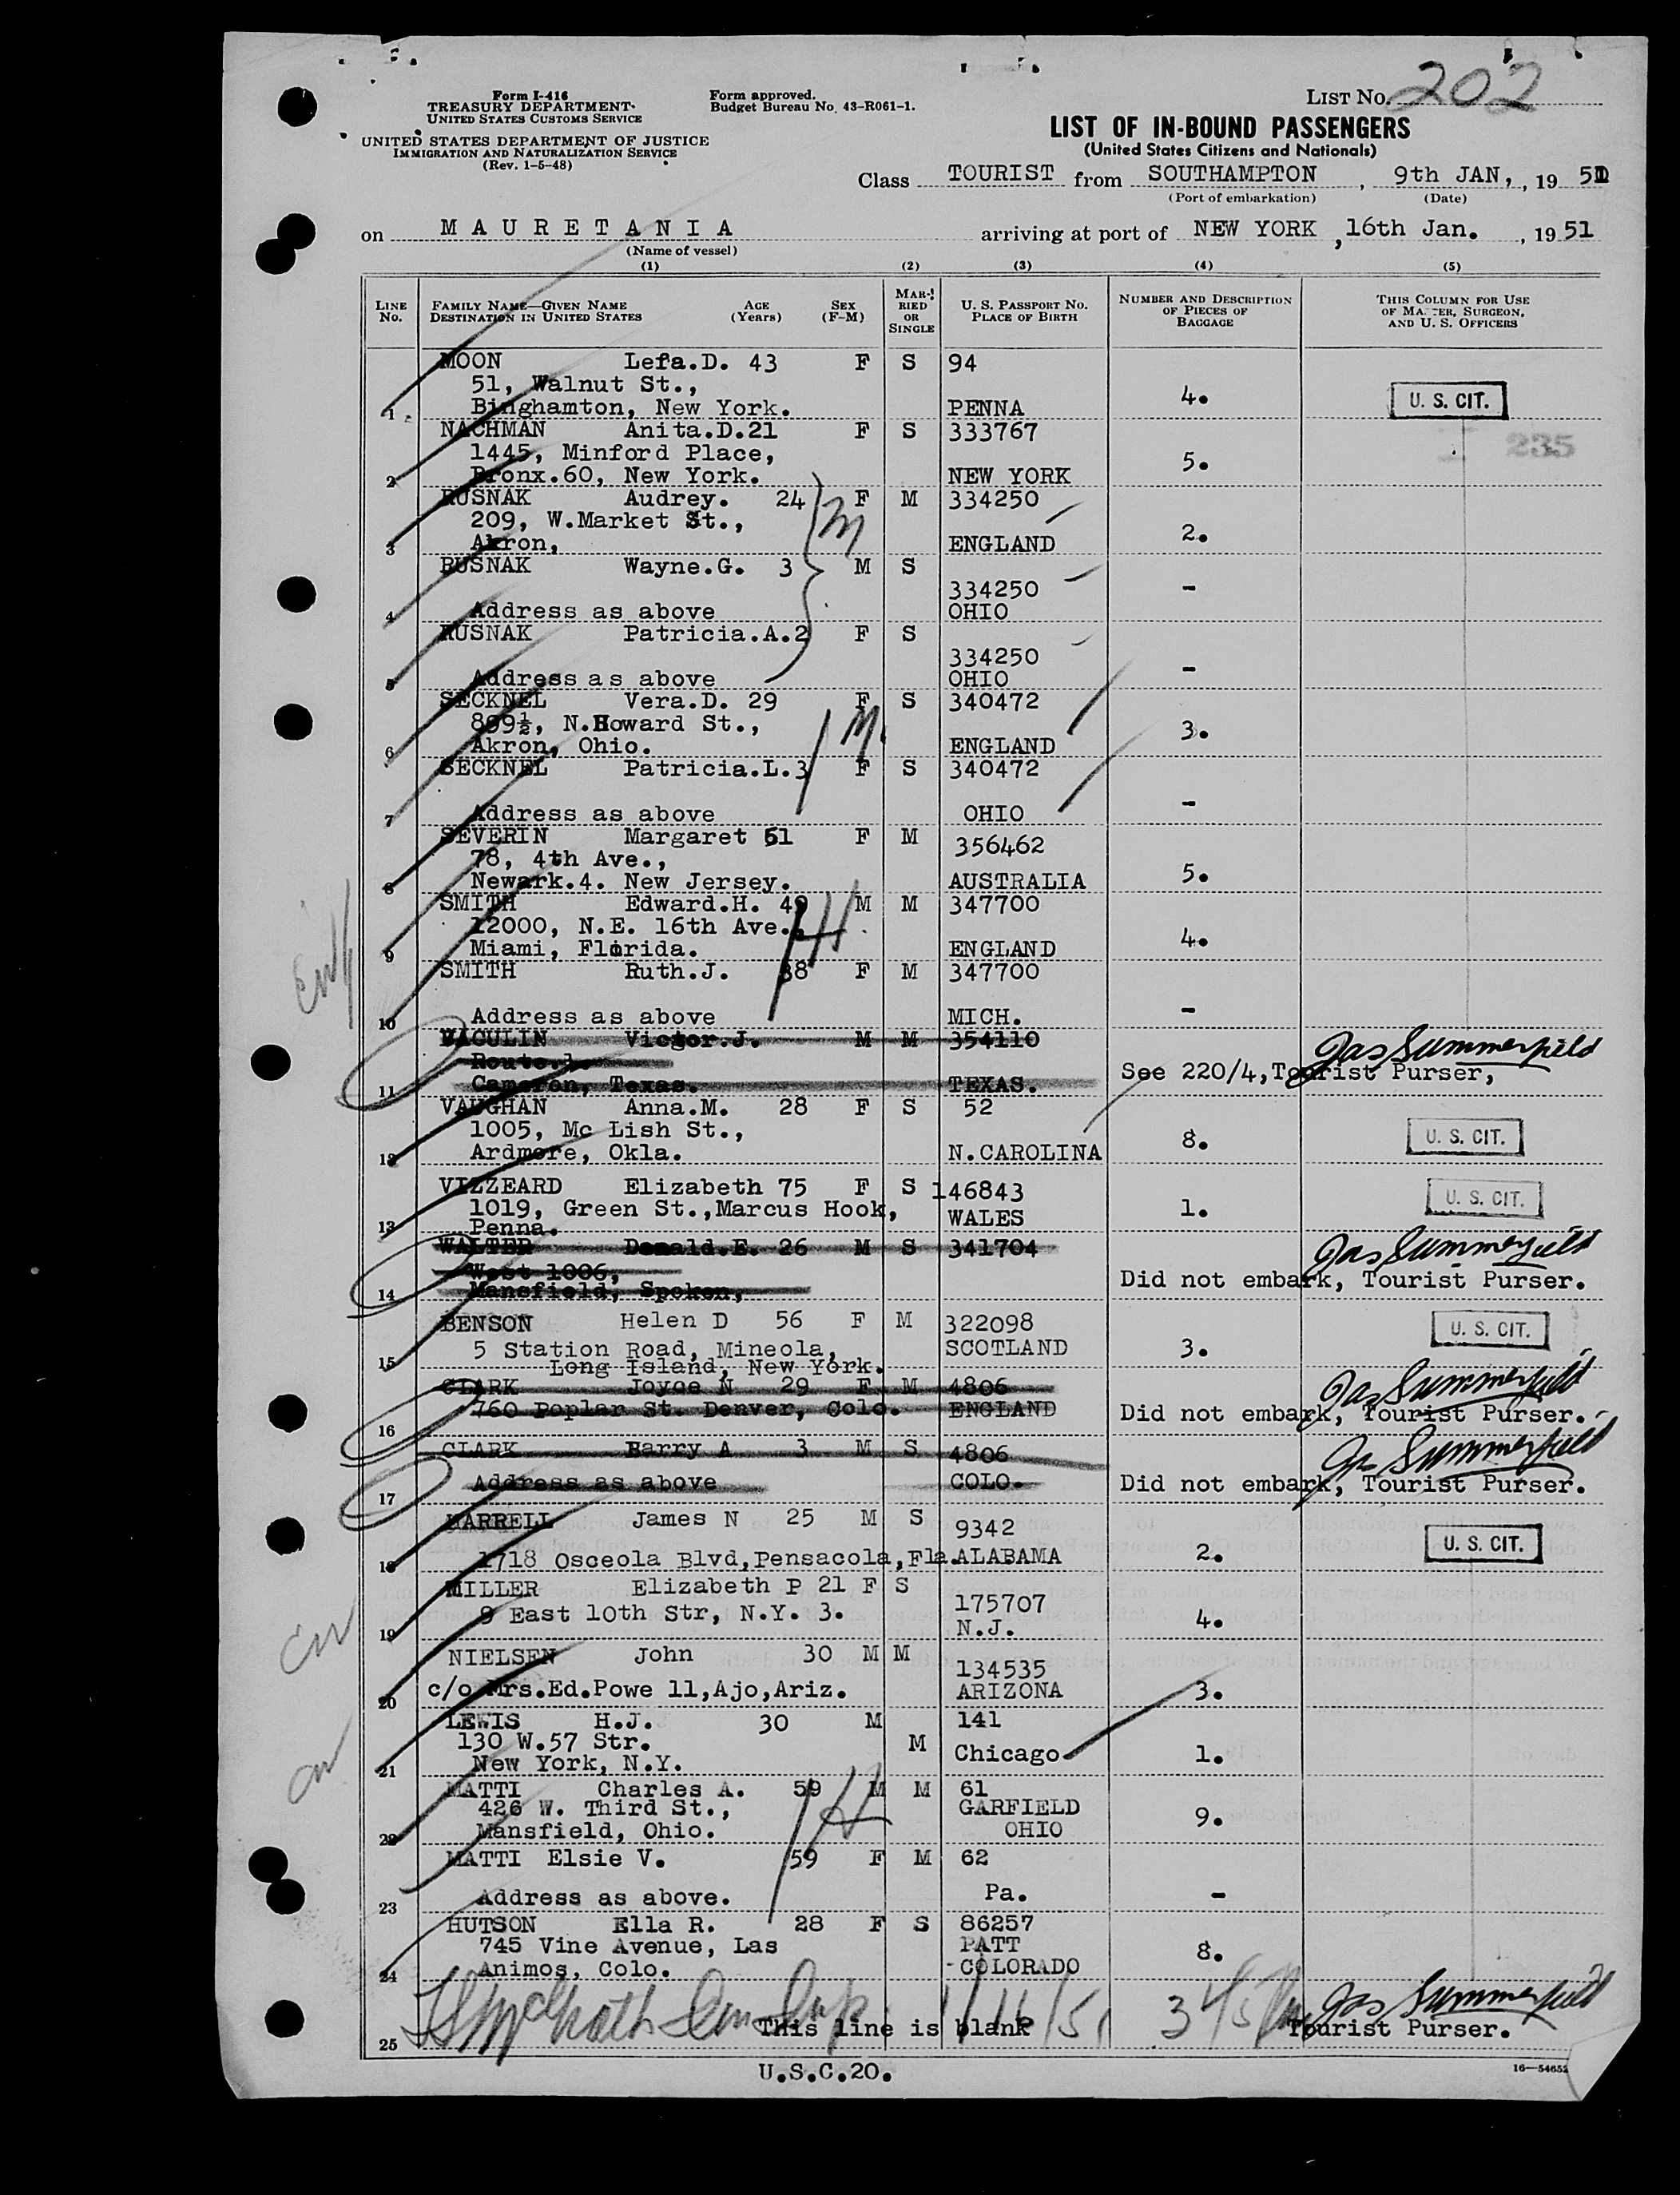 Form I-416
TREASURY DEPARTMENT
UNITED STATES CUSTOMS SERVICE
UNITED STATES DEPARTMENT OF JUSTICE
IMMIGRATION AND NATURALIZATION SERVICE
(Rev. 1-5-48)
Form approved.
Budget Bureau No. 43-R061-1.
LIST No. 202
LIST OF IN-BOUND PASSENGERS
(United States Citizens and Nationals)
Class TOURIST from SOUTHAMPTON, 9th JAN, , 19 51
(Port of embarkation) (Date)
on MAURETANIA arriving at port of NEW YORK, 16th Jan. , 19 51
(Name of vessel)
(1) (2) (3) (4) (5)
LINE No. FAMILY NAME—GIVEN NAME DESTINATION IN UNITED STATES AGE (Years) SEX (F-M) MARRIED OR SINGLE U. S. PASSPORT No. PLACE OF BIRTH NUMBER AND DESCRIPTION OF PIECES OF BAGGAGE THIS COLUMN FOR USE OF MASTER, SURGEON, AND U. S. OFFICERS
MOON Lefa.D. 43 F S 94
51, Walnut St.,
1 Binghamton, New York. PENNA 4. U. S. CIT.
NACHMAN Anita.D.21 F S 333767 235
1445, Minford Place,
2 Bronx.60, New York. NEW YORK 5.
RUSNAK Audrey. 24 F M 334250
209, W.Market St.,
3 Akron, ENGLAND 2.
RUSNAK Wayne.G. 3 M S
334250 -
4 Address as above OHIO
RUSNAK Patricia.A.2 F S
334250
5 Address as above OHIO -
SECKNEL Vera.D. 29 F S 340472
899½, N.Howard St., 3.
6 Akron, Ohio. ENGLAND
SECKNEL Patricia.L.3 F S 340472
7 Address as above OHIO -
SEVERIN Margaret 51 F M 356462
78, 4th Ave.,
8 Newark.4. New Jersey. AUSTRALIA 5.
SMITH Edward.H. 49 M M 347700
12000, N.E. 16th Ave.,
9 Miami, Florida. ENGLAND 4.
SMITH Ruth.J. 38 F M 347700
10 Address as above MICH. -
VACULIN Victor.J. M M 354110 Jas Summerfield
Route.1. See 220/4, Tourist Purser,
11 Cameron, Texas. TEXAS.
VAUGHAN Anna.M. 28 F S 52
1005, Mc Lish St., 8. U. S. CIT.
12 Ardmore, Okla. N.CAROLINA
VIZZEARD Elizabeth 75 F S 146843 U. S. CIT.
1019, Green St.,Marcus Hook, WALES 1.
13 Penna.
WALTER Donald.E. 26 M S 341704 Jas Summerfield
West 1006, Did not embark, Tourist Purser.
14 Mansfield, Spoken,
BENSON Helen D 56 F M 322098 U. S. CIT.
5 Station Road, Mineola, SCOTLAND 3.
15 Long Island, New York.
CLARK Joyce N 29 F M 4806 Jas Summerfield
16 760 Poplar St. Denver, Colo. ENGLAND Did not embark, Tourist Purser.
CLARK Barry A 3 M S 4806 Jas Summerfield
17 Address as above COLO. Did not embark, Tourist Purser.
HARRELL James N 25 M S 9342 U. S. CIT.
18 1718 Osceola Blvd,Pensacola,Fla. ALABAMA 2.
MILLER Elizabeth P 21 F S 175707
19 9 East 10th Str, N.Y. 3. N.J. 4.
NIELSEN John 30 M M 134535
20 c/o Mrs.Ed.Powe 11,Ajo,Ariz. ARIZONA 3.
LEWIS H.J. 30 M 141
130 W.57 Str. M Chicago 1.
21 New York, N.Y.
MATTI Charles A. 59 M M 61
426 W. Third St., GARFIELD 9.
22 Mansfield, Ohio. OHIO
MATTI Elsie V. 59 F M 62
23 Address as above. Pa. -
HUTSON Ella R. 28 F S 86257
745 Vine Avenue, Las PATT 8.
24 Animos, Colo. COLORADO
1/16/51 Jas Summerfield
25 This line is blank Tourist Purser.
U.S.C.20.
16—54652